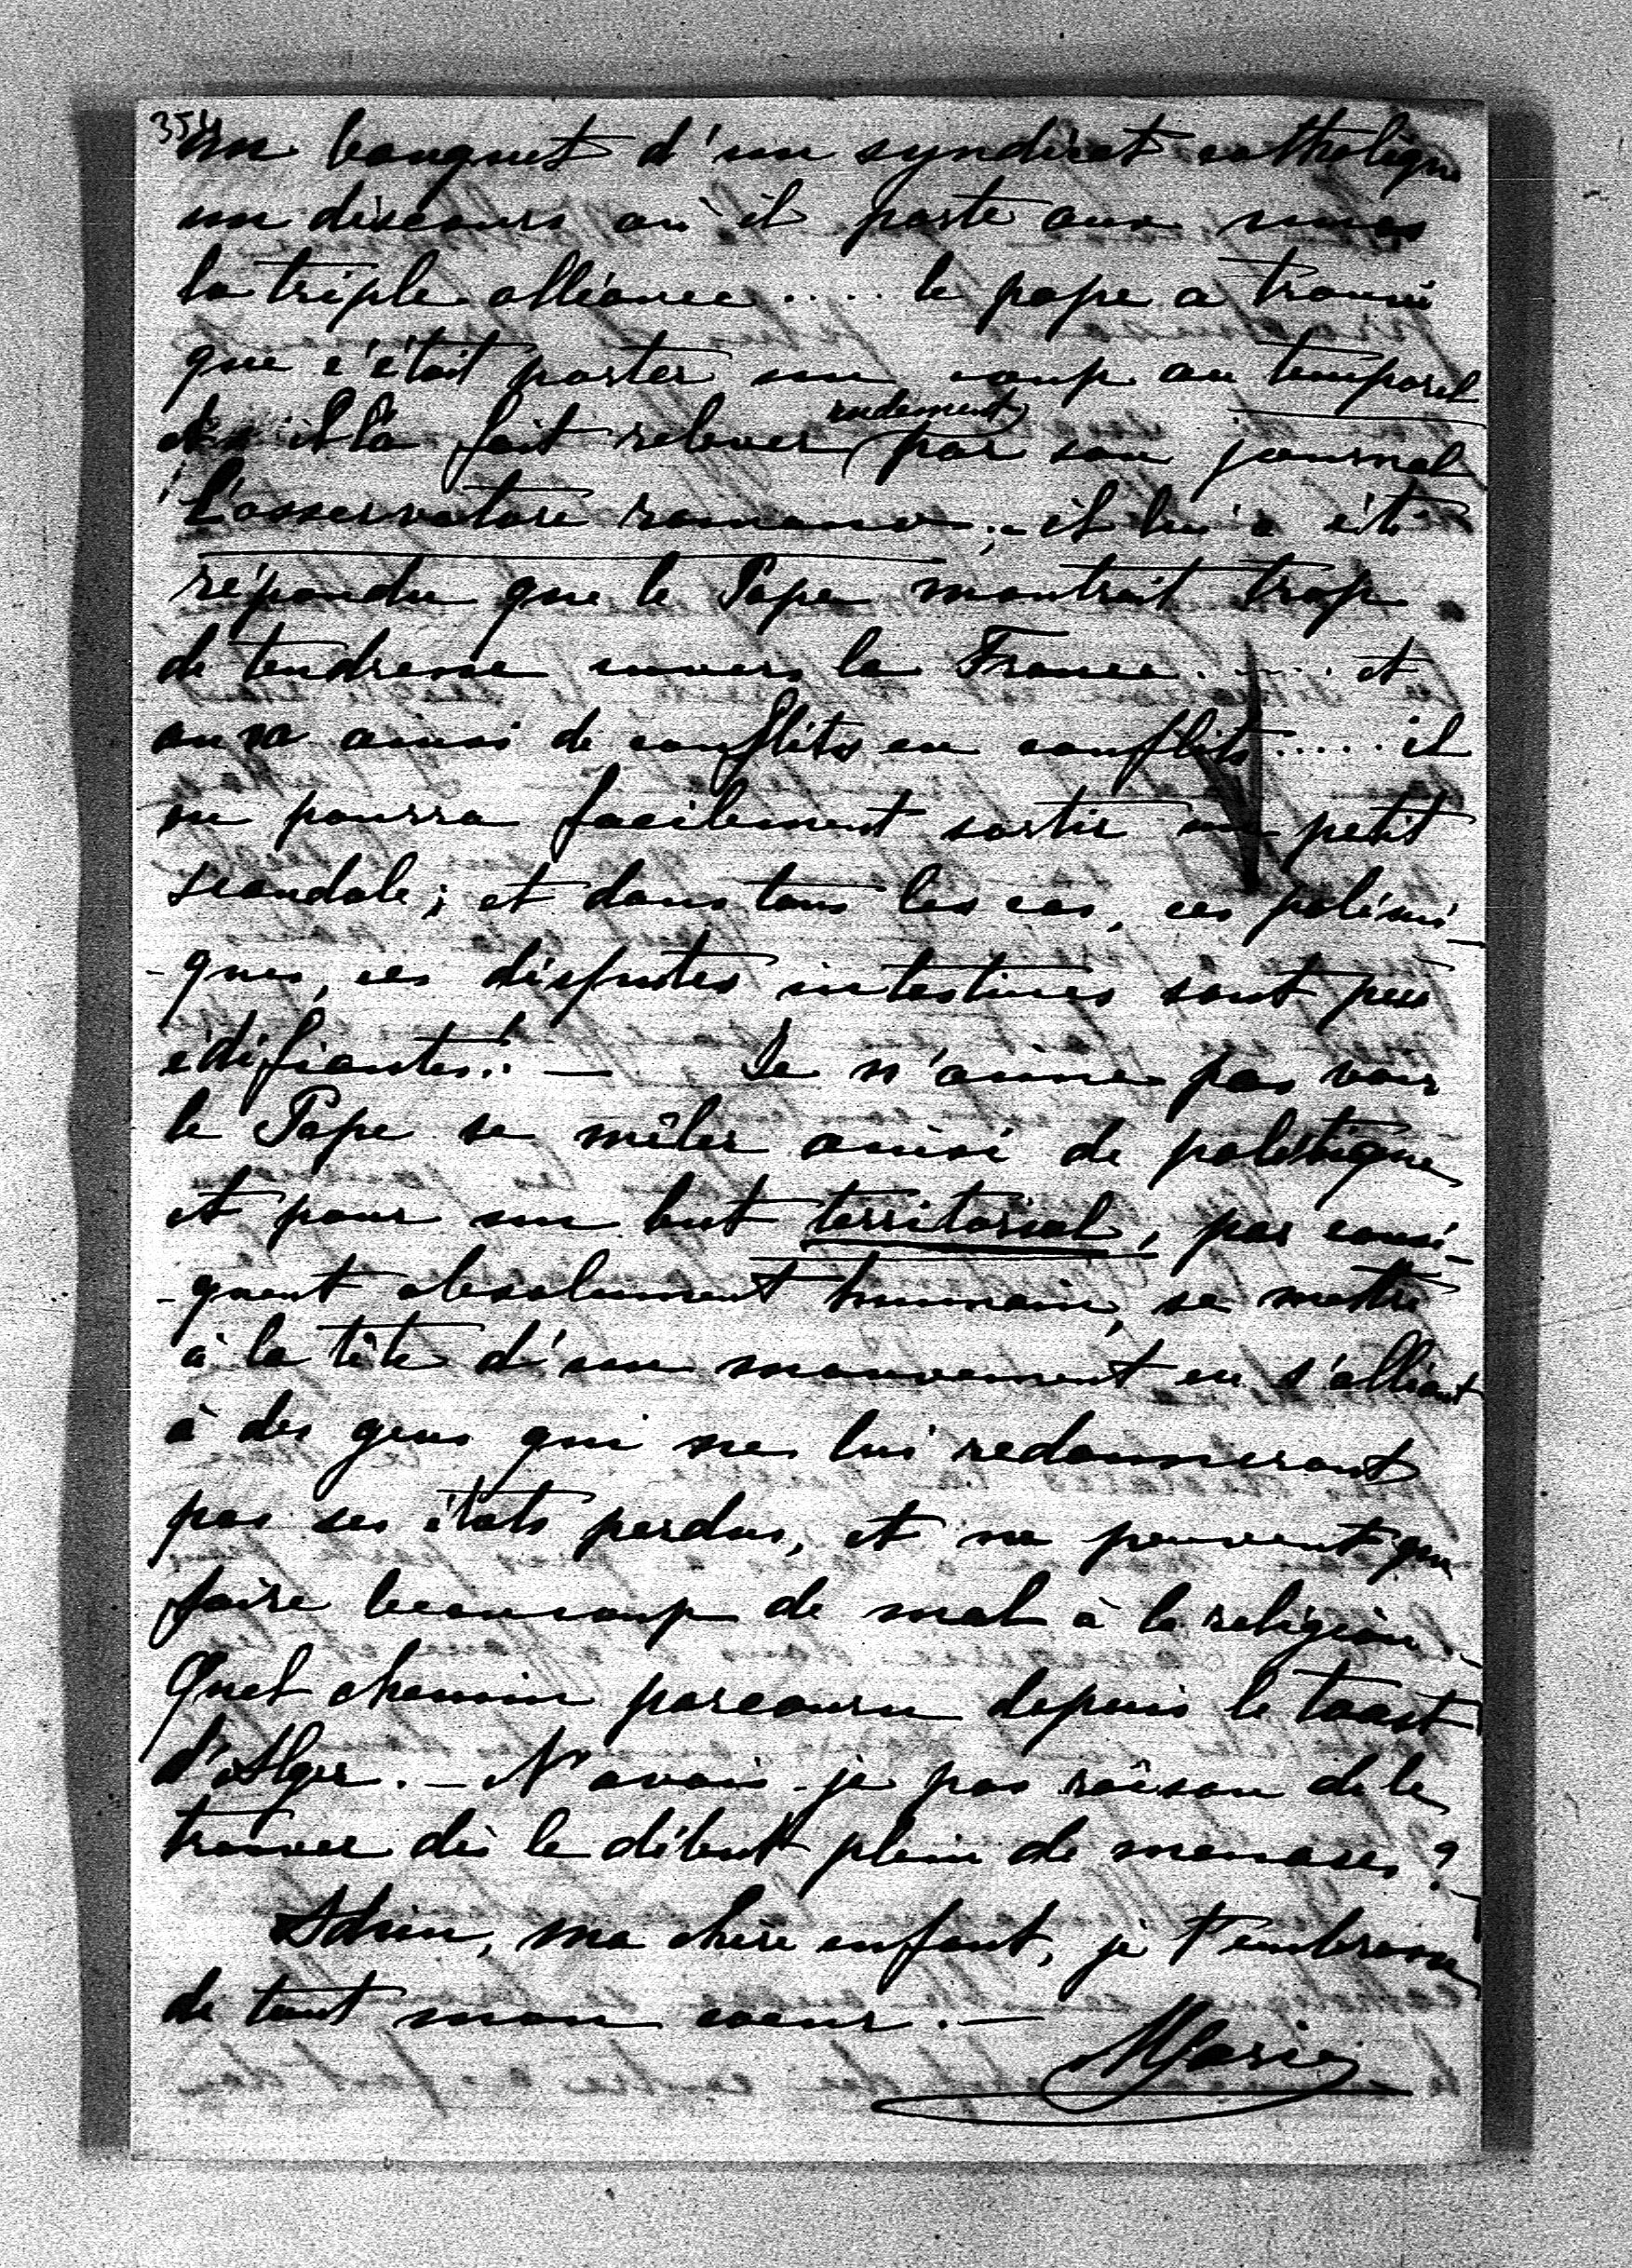 354
un banquet d'un syndicat catholique
un discours où il porte aux nues
la triple alliance.... le pape a trouvé
que c'était porter un coup au temporel
et il l'a fait relever rudement par son journal
l'osservatore romano ; - il lui a été
répondu que le Pape montrait trop
de tendresse envers la France..... et
on va ainsi de conflits en conflits..... il
en pourra facilement sortir un petit
scandale ; et dans tous les cas, ces polémi-
-ques, ces disputes intestines sont peu
édifiantes. — Je n'aime pas voir
le Pape se mêler ainsi de politique
et pour un but territorial, par consé-
-quent absolument humain, se mettre
à la tête d'un mouvement en s'alliant
à des gens qui ne lui redonneront
pas ses états perdus, et ne peuvent que
faire beaucoup de mal à la religion.
Quel chemin parcouru depuis le toast
d'Alger. - N'avais-je pas raison de le
trouver dès le début plein de menaces ?
Adieu, ma chère enfant, je t'embrasse
de tout mon coeur. —
Marie